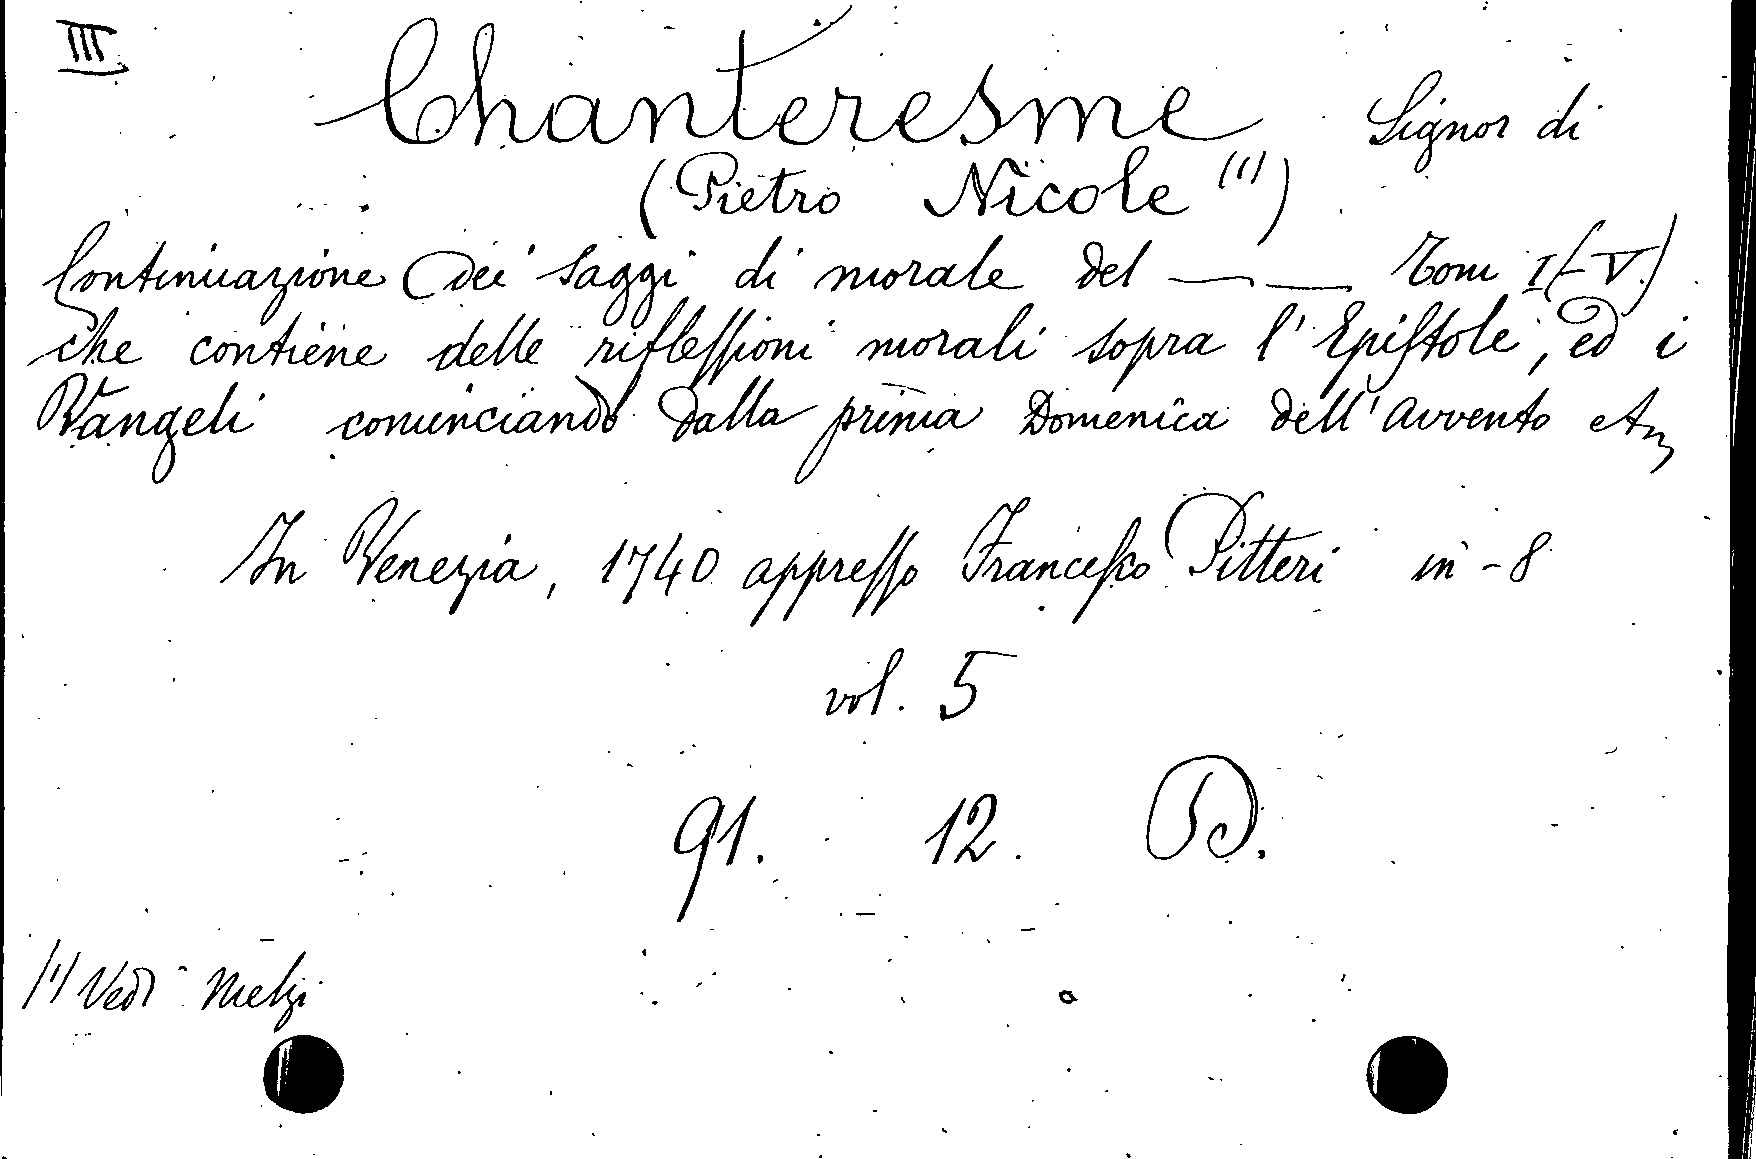 III
Chanteresme Signor di
(Pietro Nicole (1))
Continuazione dei saggi di morale del —— Tom I(-V)
che contiene delle riflessioni morali sopra l'Epistole, ed i
Vangeli cominciando dalla prima Domenica dell'Avvento
In Venezia, 1740 appresso Francesco Pitteri in-8
vol. 5
91. 12. D.
(1) Vedi Melzi